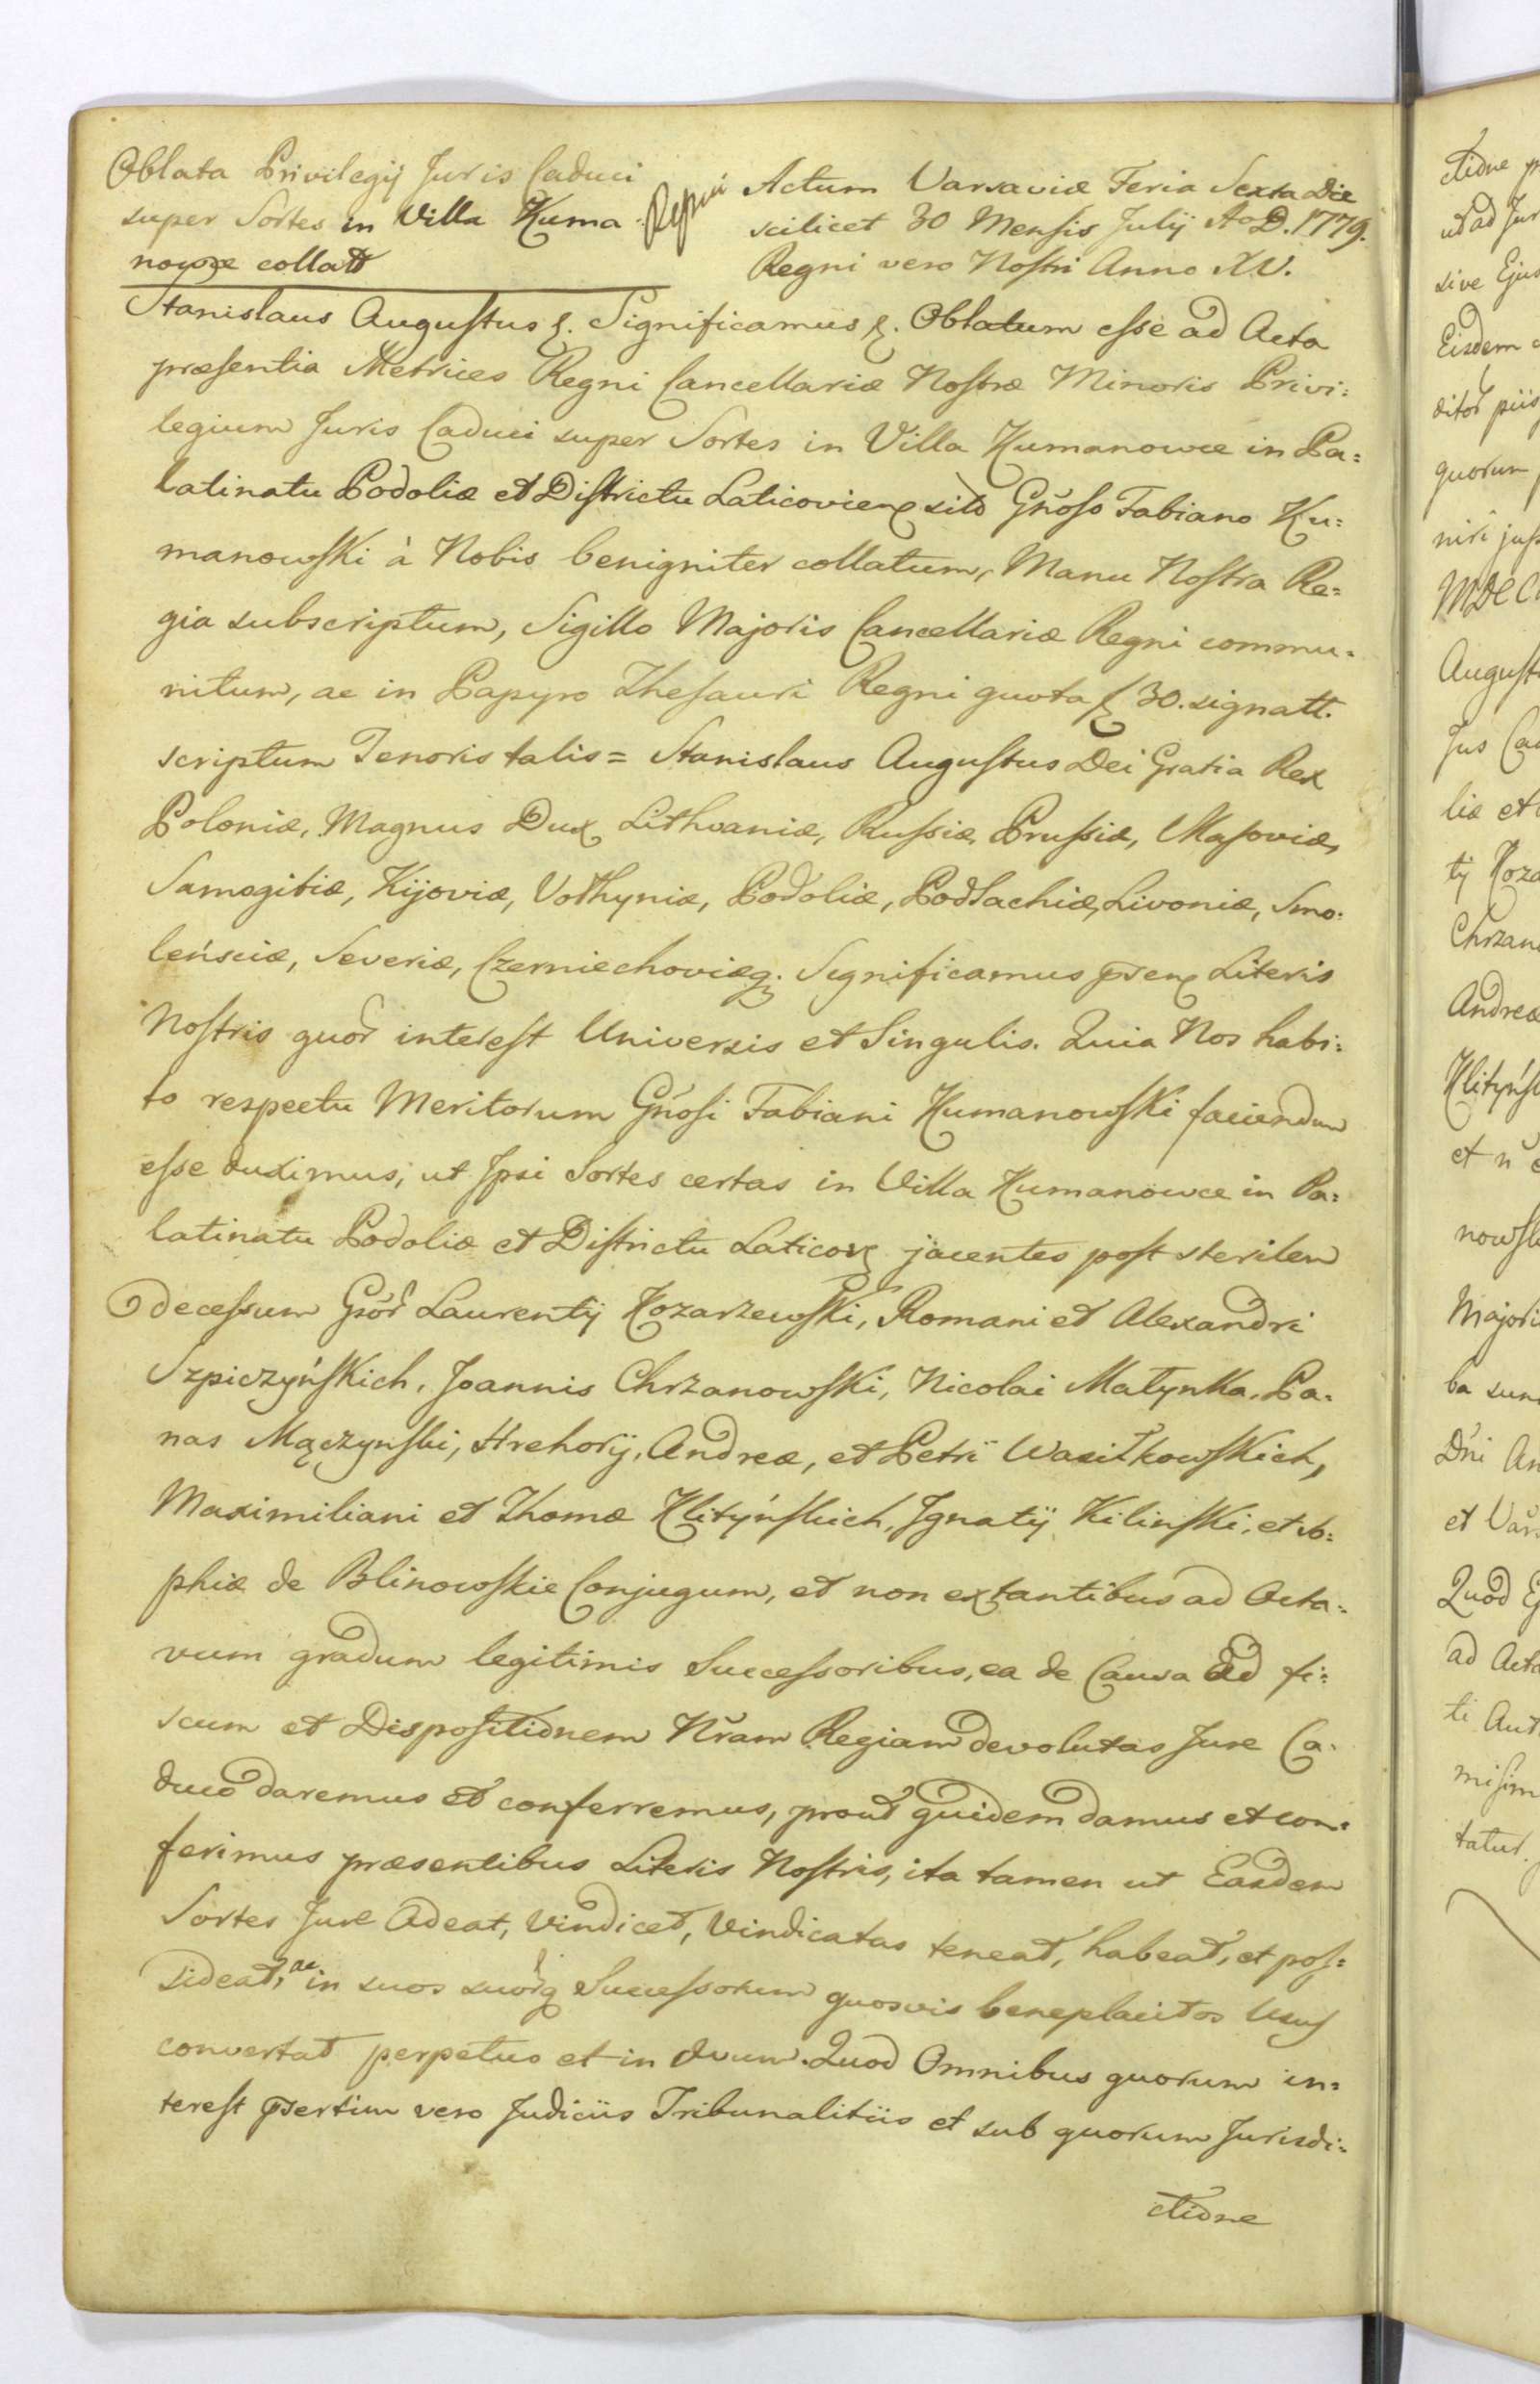 Oblata Privilegij Juris Caduci
super Sortes in Villa Kuma
nowce collatt
Actum Varsaviæ Feria Sexta Die
scilicet 30 Mensis Julij Ao D. 1779.
Regni vero Nostri Anno XV.
Stanislaus Augustus &. Significamus &. Oblatum esse ad Acta
præsentia Metrices Regni Cancellariæ Nostræ Minoris Privi:
legium Juris Caduci super Sortes in Villa Kumanowce in Pa:
latinatu Podoliæ et Districtu Laticovien sitô Gnoso Fabiano Ku:
manowski à Nobis benigniter collatum, Manu Nostra Re:
gia subscriptum, Sigillo Majoris Cancellariæ Regni commu:
nitum, ac in Papyro Thesauri Regni quota 30. signatt.
scriptum Tenoris talis = Stanislaus Augustus Dei Gratia Rex
Poloniæ, Magnus Dux Lithvaniæ, Russiæ, Prussiæ, Masoviæ,
Samogitiæ, Kijoviæ, Volhyniæ, Podoliæ, Podlachiæ, Livoniæ, Smo:
leńsciæ, Severiæ, Czerniechoviæq. Significamus pren Literis
Nostris quor interest Universis et Singulis. Quia Nos habi:
to respectu Meritorum Gnosi Fabiani Kumanowski faciendum
esse duximus, ut Ipsi Sortes certas in Villa Kumanowce in Pa:
latinatu Podoliæ et Districtu Laticov jacentes post sterilem
decessum Gsor Laurentij Kozarzewski, Romani et Alexandri
Szpiczyńskich, Joannis Chrzanowski, Nicolai Matynka, Pa:
nas Mączynski, Hrehorij, Andreæ, et Petri Wasiłkowskich,
Maximiliani et Thomæ Klityńskich, Ignatij Kilinski, et So:
phiæ de Blinowskie Conjugum, et non extantibus ad Octa:
vum gradum legitimis Successoribus, ea de Causa ad fi:
scum et Dispositionem Nram Regiam devolutas Jure Ca:
duco daremus et conferremus, prout quidem damus et con:
ferimus præsentibus Literis Nostris, ita tamen ut Easdem
Sortes Jure Adeat, Vindicet, Vindicatas teneat, habeat, et pos:
sideat, ac in suos suorq Successorum quosvis beneplacitos Usus
convertat perpetuo et in Ævum. Quod Omnibus quorum in:
terest psertim vero Judiciis Tribunalitiis et sub quorum Jurisdi:
ctione